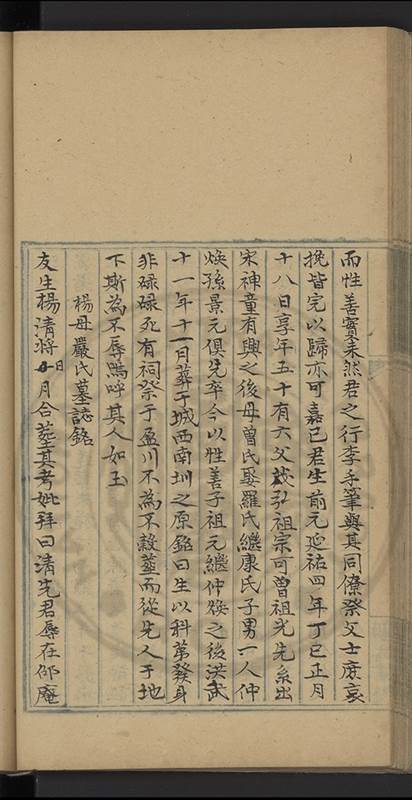 而性善實来然君之行李手筆與其同僚祭文士庶哀
挽皆完以歸亦可嘉已君生前元延祐四年丁巳正月
十八日享年五十有六父茂弘祖宗可曾祖光先系出
宋神童有興之後母曾氏娶羅氏繼康氏子男一人仲
煥孫景元俱先卒今以性善子祖元繼仲煥之後洪武
十一年十一日葬于城西南圳之原銘曰生以科第發身
非碌碌死有祠祭于盈川不為不穀葢而從先人于地
下斯為不辱嗚呼其人如玉
楊母嚴氏墓誌銘
友生楊清將以日月合葬其考妣拜曰清先君辱在邵庵